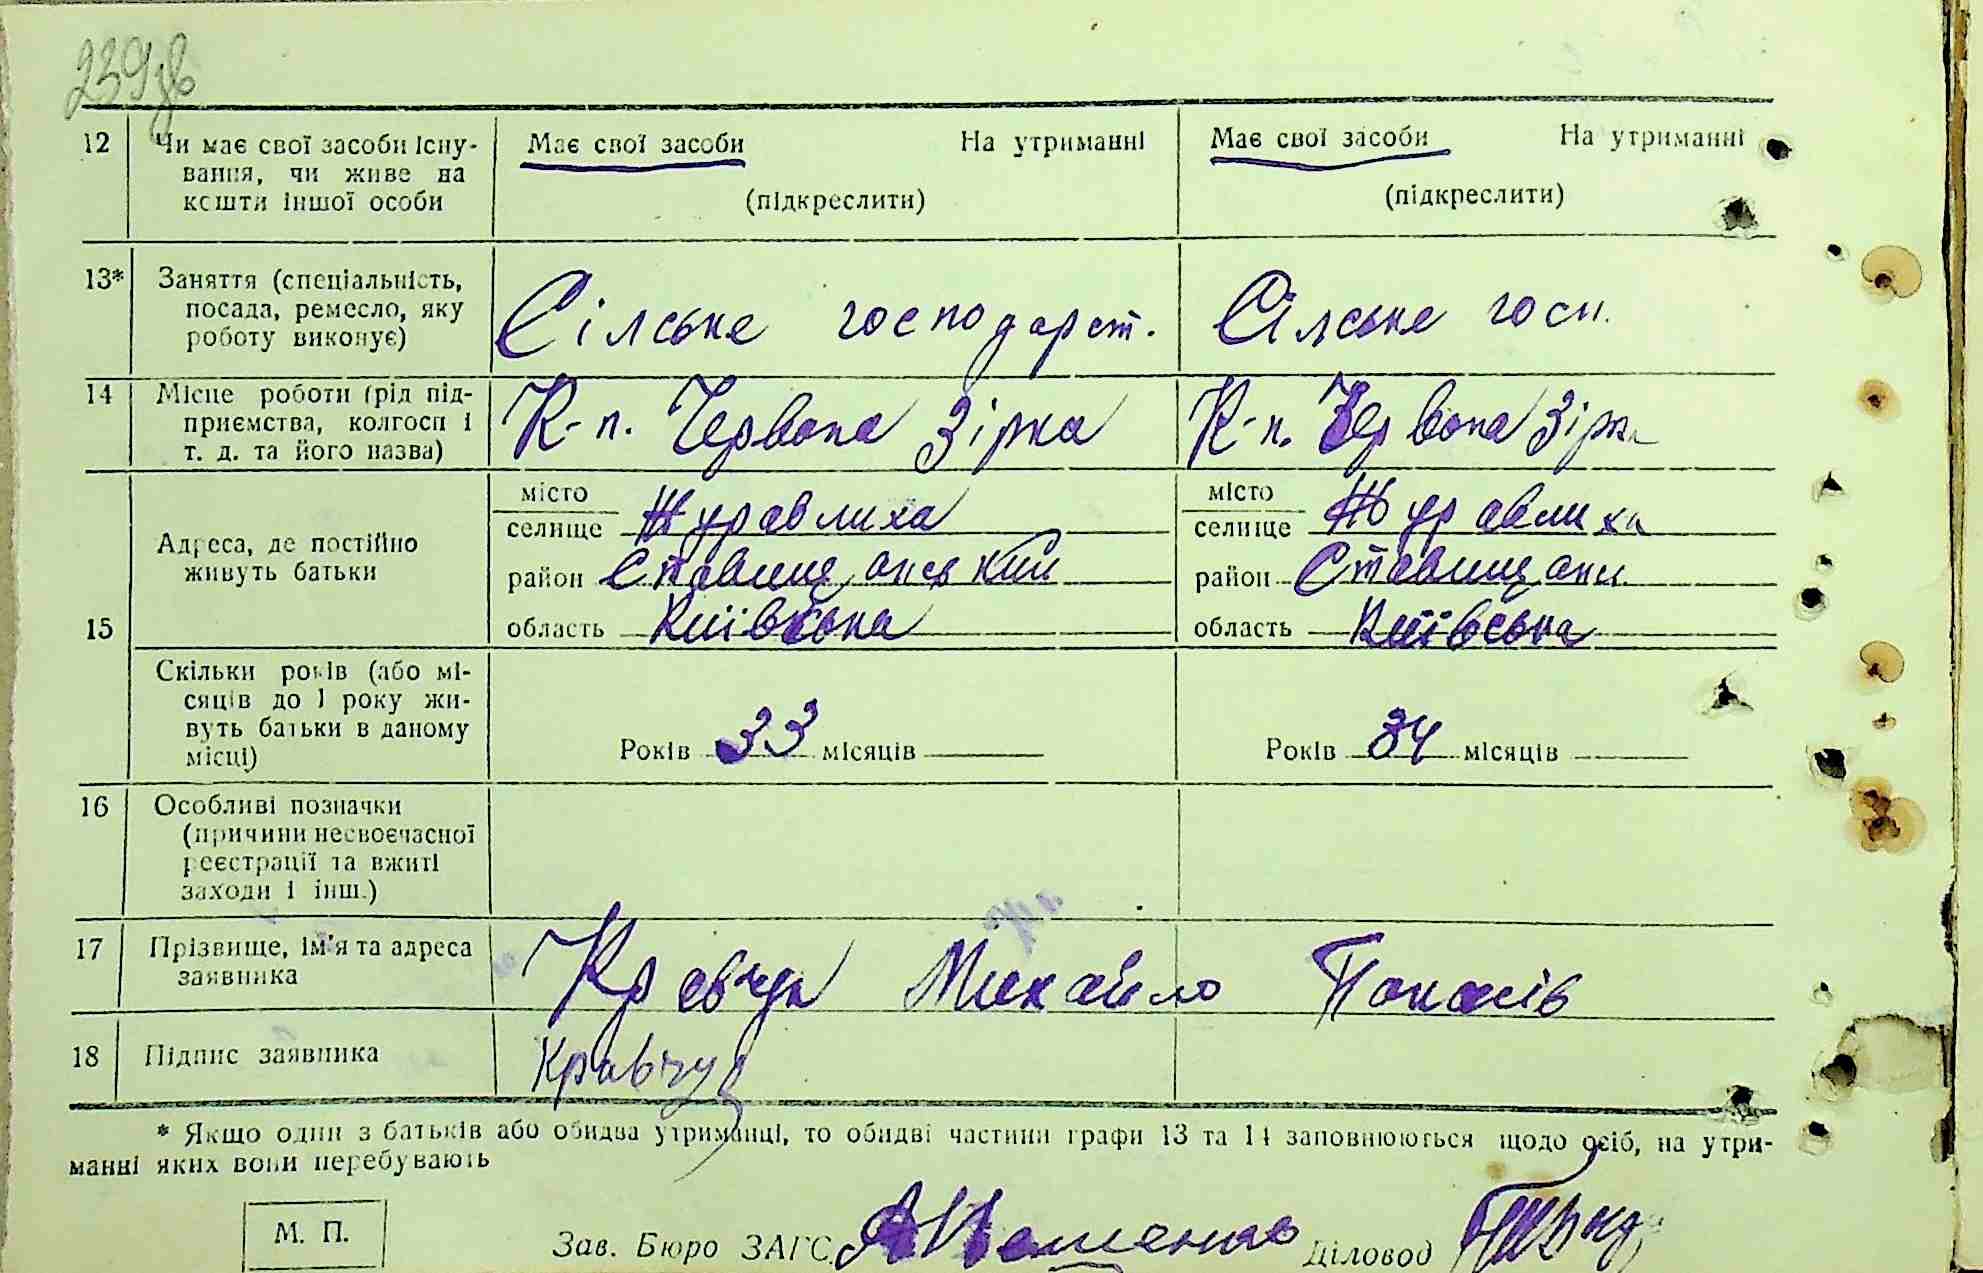 239 зв
12 Чи має свої засоби існу- Має свої засоби На утриманні Має свої засоби На утриманні
вання, чи живе на
кошти іншої особи (підкреслити) (підкреслити)
13* Заняття (спеціальність,
посада, ремесло, яку Сілське господарст. Сілське госп.
роботу виконує)
14 Місце роботи (рід під-
приємства, колгосп і К-п. Червона Зірка К-п. Червона Зірка
т. д. та його назва)
місто місто
селище Журавлиха селище Журавлиха
Адреса, де постійно
живуть батьки район Ставищанський район Ставищан
15 область Київська область Київська
Скільки років (або мі-
сяців до 1 року жи-
вуть батьки в даному
місці) Років 33 місяців Років 34 місяців
16 Особливі позначки
(причини несвоєчасної
реєстрації та вжиті
заходи і інш.)
17 Прізвище, ім'я та адреса
заявника Кравчук Михайло Панасів
18 Підпис заявника Кравчук
* Якщо один з батьків або обидва утриманці, то обидві частини графи 13 та 14 заповнюються щодо осіб, на утри-
манні яких вони перебувають
М. П.
Зав. Бюро ЗАГС Діловод